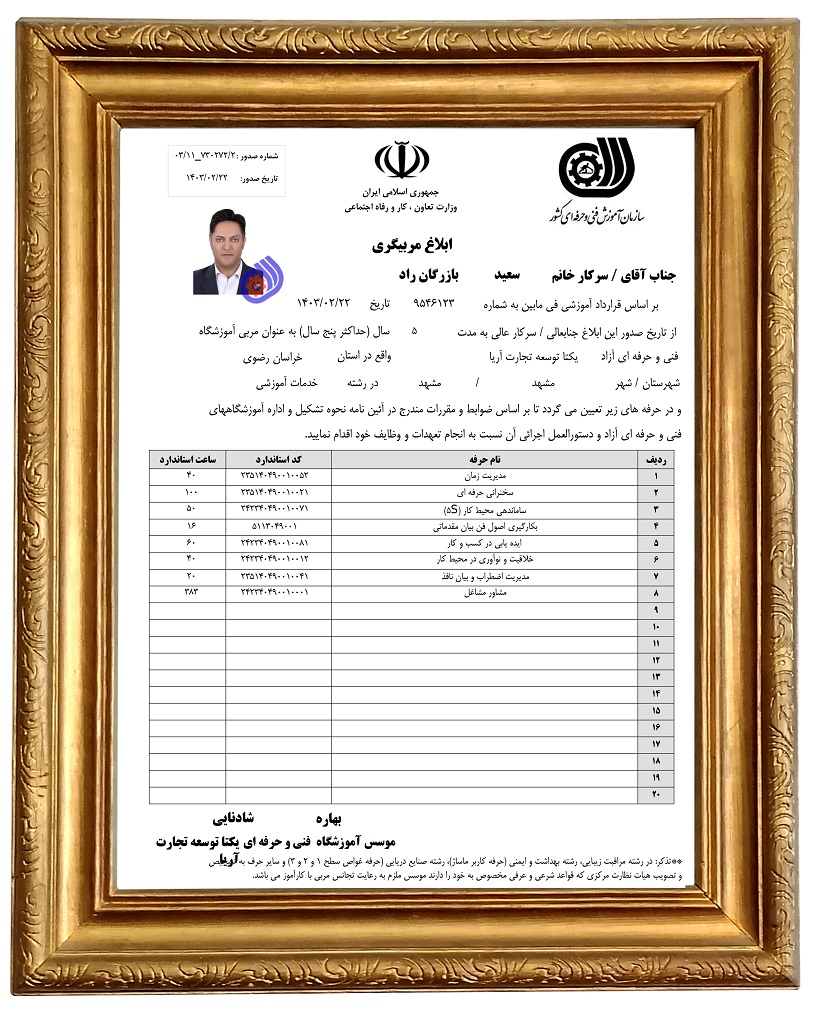 شماره صدور : ۰۳/۱۱_۷۳۰۲۷۲/۲
تاریخ صدور: ۱۴۰۳/۰۲/۲۲
جمهوری اسلامی ایران
وزارت تعاون ، کار و رفاه اجتماعی
سازمان آموزش فنی و حرفه ای کشور
ابلاغ مربیگری
جناب آقای / سرکار خانم سعید بازرگان راد
بر اساس قرارداد آموزشی فی مابین به شماره ۹۵۴۶۱۲۳ تاریخ ۱۴۰۳/۰۲/۲۲
از تاریخ صدور این ابلاغ جنابعالی / سرکار عالی به مدت ۵ سال (حداکثر پنج سال) به عنوان مربی آموزشگاه
فنی و حرفه ای آزاد یکتا توسعه تجارت آریا واقع در استان خراسان رضوی
شهرستان / شهر مشهد / مشهد در رشته خدمات آموزشی
و در حرفه های زیر تعیین می گردد تا بر اساس ضوابط و مقررات مندرج در آئین نامه نحوه تشکیل و اداره آموزشگاههای
فنی و حرفه ای آزاد و دستورالعمل اجرائی آن نسبت به انجام تعهدات و وظایف خود اقدام نمایید.
ردیف نام حرفه کد استاندارد ساعت استاندارد
۱ مدیریت زمان ۲۳۵۱۴۰۴۹۰۰۱۰۰۵۲ ۴۰
۲ سخنرانی حرفه ای ۲۳۵۱۴۰۴۹۰۰۱۰۰۲۱ ۱۰۰
۳ ساماندهی محیط کار (۵S) ۲۴۲۳۴۰۴۹۰۰۱۰۰۷۱ ۵۰
۴ بکارگیری اصول فن بیان مقدماتی ۵۱۱۳۰۴۹۰۰۱ ۱۶
۵ ایده یابی در کسب و کار ۲۴۲۳۴۰۴۹۰۰۱۰۰۸۱ ۶۰
۶ خلاقیت و نوآوری در محیط کار ۲۴۲۳۴۰۴۹۰۰۱۰۰۱۲ ۴۰
۷ مدیریت اضطراب و بیان نافذ ۲۳۵۱۴۰۴۹۰۰۱۰۰۴۱ ۲۰
۸ مشاور مشاغل ۲۴۲۳۴۰۴۹۰۰۱۰۰۰۱ ۳۸۳
۹
۱۰
۱۱
۱۲
۱۳
۱۴
۱۵
۱۶
۱۷
۱۸
۱۹
۲۰
بهاره شادنایی
موسس آموزشگاه فنی و حرفه ای یکتا توسعه تجارت
آریا
**تذکر: در رشته مراقبت زیبایی، رشته بهداشت و ایمنی (حرفه کاربر ماساژ)، رشته صنایع دریایی (حرفه غواص سطح ۱ و ۲ و ۳) و سایر حرف به
و تصویب هیات نظارت مرکزی که قواعد شرعی و عرفی مخصوص به خود را دارند موسس ملزم به رعایت تجانس مربی با کارآموز می باشد.